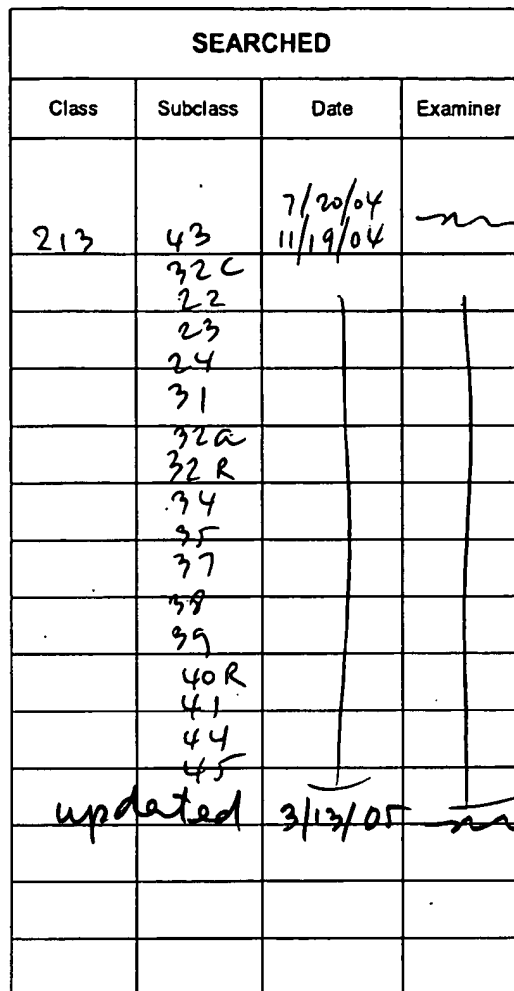 SEARCHED
Class Subclass Date Examiner
7/20/04
213 43 11/19/04
32C
22
23
24
31
32a
32R
34
35
37
38
39
40R
41
44
45
updated 3/13/05